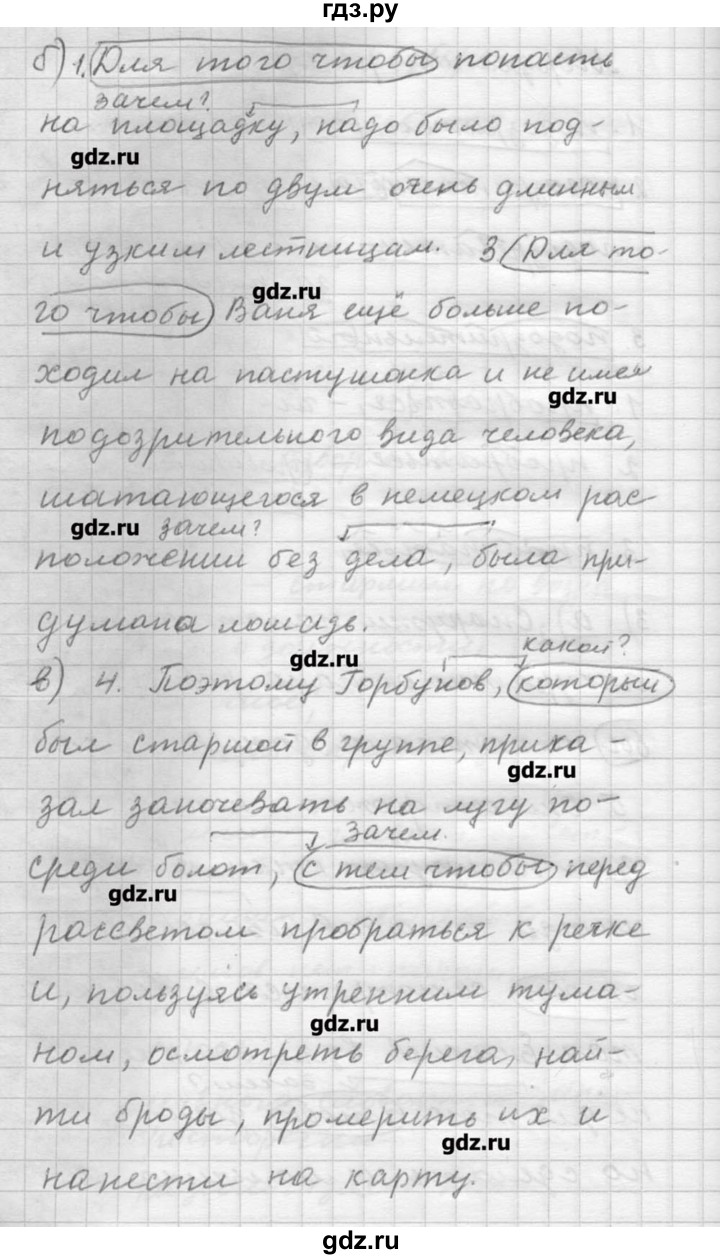 гдз.ру
б) 1. Для того чтобы попасть
зачем?
на площадку, надо было под-
gdz.ru
няться по двум очень длинным
и узким лестницам. 3 Для то-
gdz.ru
го чтобы Ваня ещё больше по-
ходил на пастушонка и не имел
gdz.ru
подозрительного вида человека,
шатающегося в немецком рас
gdz.ru зачем?
положении без дела, была при-
думана лошадь.
какой?
gdz.ru
в) 4. Поэтому Горбунов, который
был старшой в группе, прика-
gdz.ru
зал заночевать на лугу по-
зачем.
среди болот, с тем чтобы перед
gdz.ru
рассветом пробраться к речке
и, пользуясь утренним тума-
gdz.ru
ном, осмотреть берега, най-
ти броды, промерить их и
gdz.ru
нанести на карту.
gdz.ru